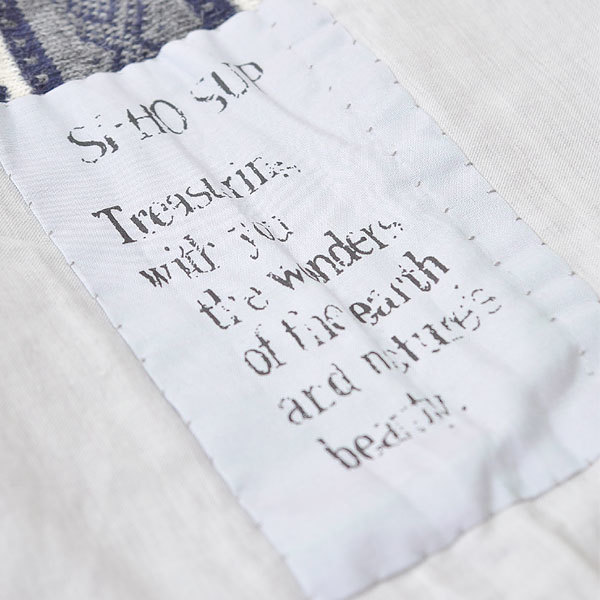 Si-HO SUP
Treasuring
with you
the wonders
of the earth
and nature's
beauty.